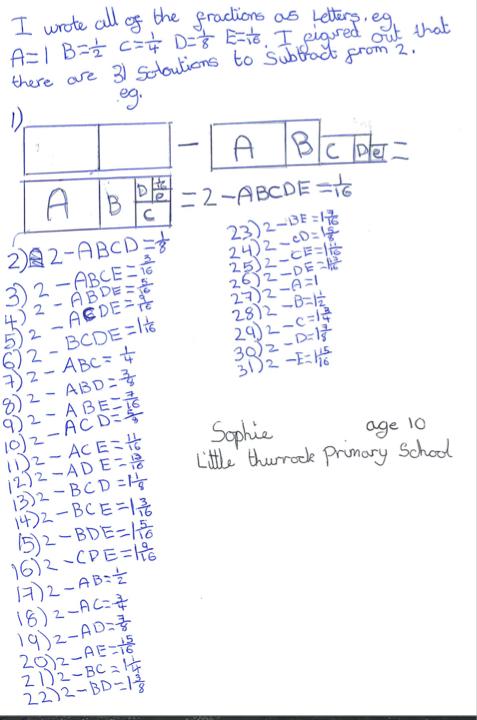 I wrote all of the fractions as Letters. eg
A=1 B=1/2 C=1/4 D=1/8 E=1/16. I figured out that
there are 31 Soloutions to Subtract from 2.
eg.
1)
A B C D e
A B D 1/16 e C
= 2-ABCDE = 1/16
2) 2-ABCD=1/8
3) 2-ABCE=3/16
4) 2-ABDE=5/16
5) 2-ACDE=9/16
6) 2-BCDE=1 1/16
7) 2-ABC=1/4
8) 2-ABD=3/8
9) 2-ABE=7/16
10) 2-ACD=5/8
11) 2-ACE=11/16
12) 2-ADE=13/16
13) 2-BCD=1 1/8
14) 2-BCE=1 3/16
15) 2-BDE=1 5/16
16) 2-CDE=1 9/16
17) 2-AB=1/2
18) 2-AC=3/4
19) 2-AD=7/8
20) 2-AE=15/16
21) 2-BC=1 1/4
22) 2-BD=1 3/8
23) 2-BE=1 7/16
24) 2-CD=1 5/8
25) 2-CE=1 11/16
26) 2-DE=1 13/16
27) 2-A=1
28) 2-B=1 1/2
29) 2-C=1 3/4
30) 2-D=1 7/8
31) 2-E=1 15/16
Sophie age 10
Little thurrock Primary School